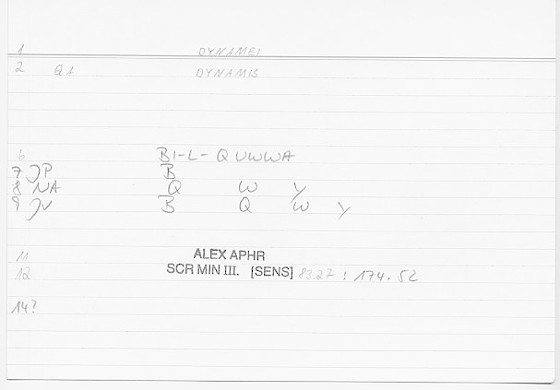 1 DYNAMEI
2 Q1 DYNAMIS
6 BI-L-QUWWA
7 JP B
8 NA Q W Y
9 JV B Q W Y
11 ALEX APHR
12 SCR MIN III. [SENS] 83.27 : 174.52
14?